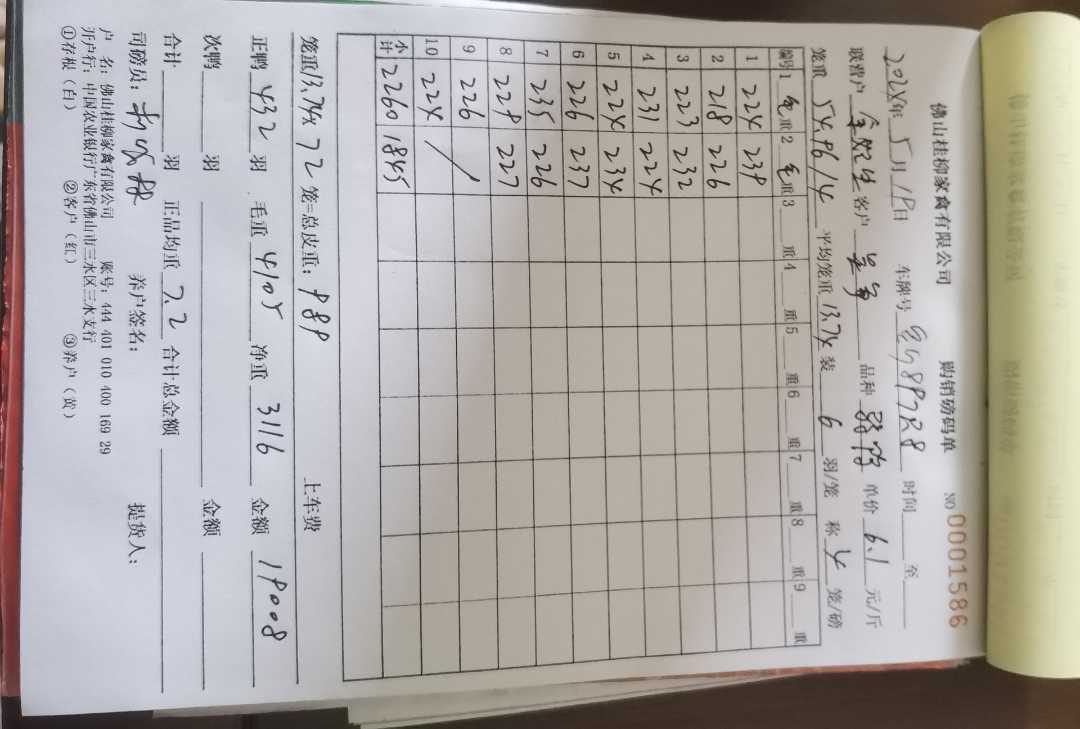 佛山桂柳家禽有限公司 购销磅码单 NO 0001586
2024年 5月 19日 车牌号 时间 至
联营户 客户 品种 单价 6.1 元/斤
笼重 54.96/4 平均笼重 13.74 装 6 羽/笼 称 4 笼/磅
编号 1 毛重 2 毛重 3 重 4 重 5 重 6 重 7 重 8 重 9 重
1 224 239
2 218 226
3 223 232
4 231 224
5 224 234
6 226 237
7 235 226
8 229 227
9 226 /
10 224
小计 2260 1845
笼重13.74X 72 笼=总皮重: 989 上车费
正鸭 432 羽 毛重 4105 净重 3116 金额 19008
次鸭 羽 金额
合计 羽 正品均重 7.2 合计总金额
司磅员: 养户签名: 提货人:
户 名: 佛山桂柳家禽有限公司 账号: 444 401 010 400 169 29
开户行: 中国农业银行广东省佛山市三水区三水支行
①存根(白) ②客户(红) ③养户(黄)